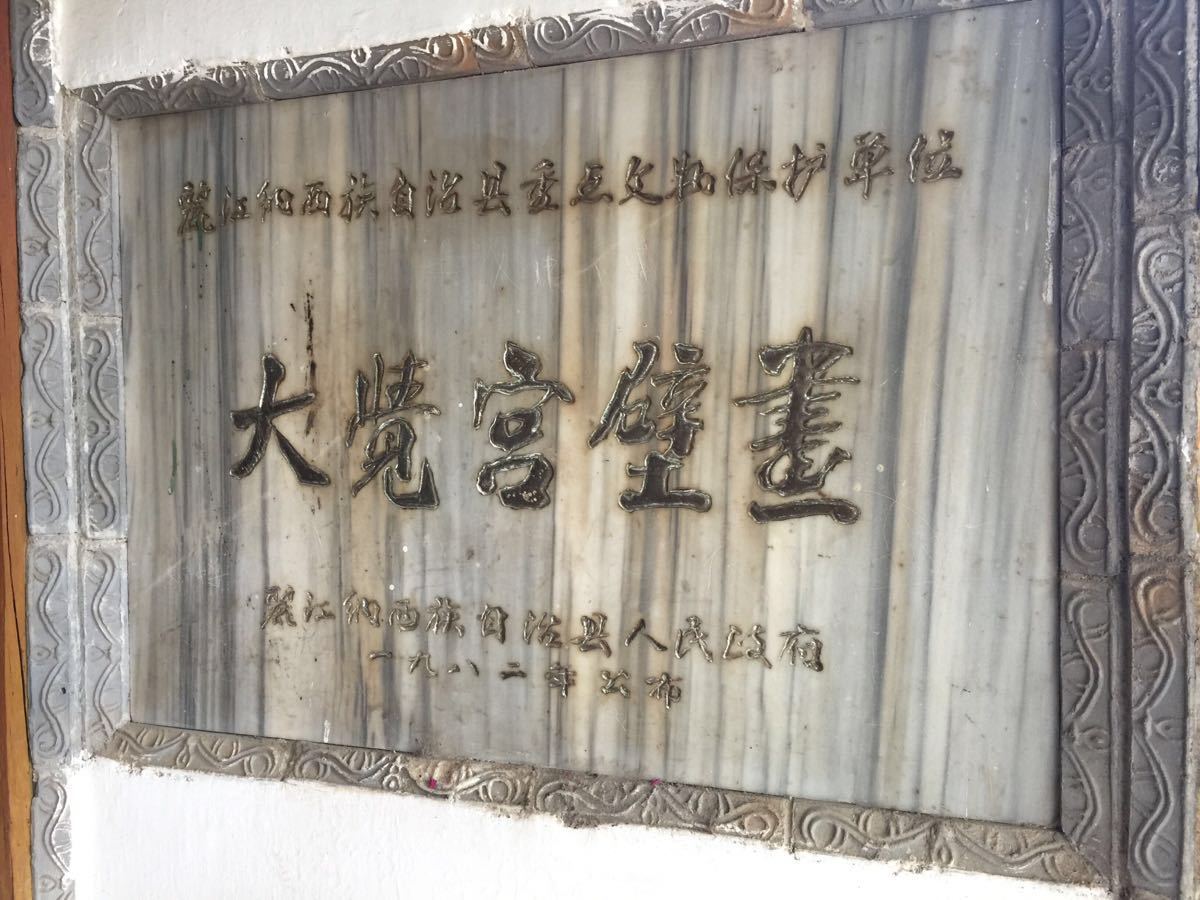 麗江纳西族自治县重点文物保护单位
大覺宫壁畫
麗江纳西族自治县人民政府
一九八二年公布